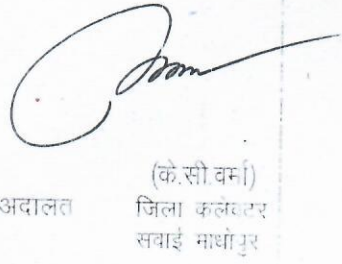 (के.सी.वर्मा)
अदालत जिला कलेक्टर
सवाई माधोपुर